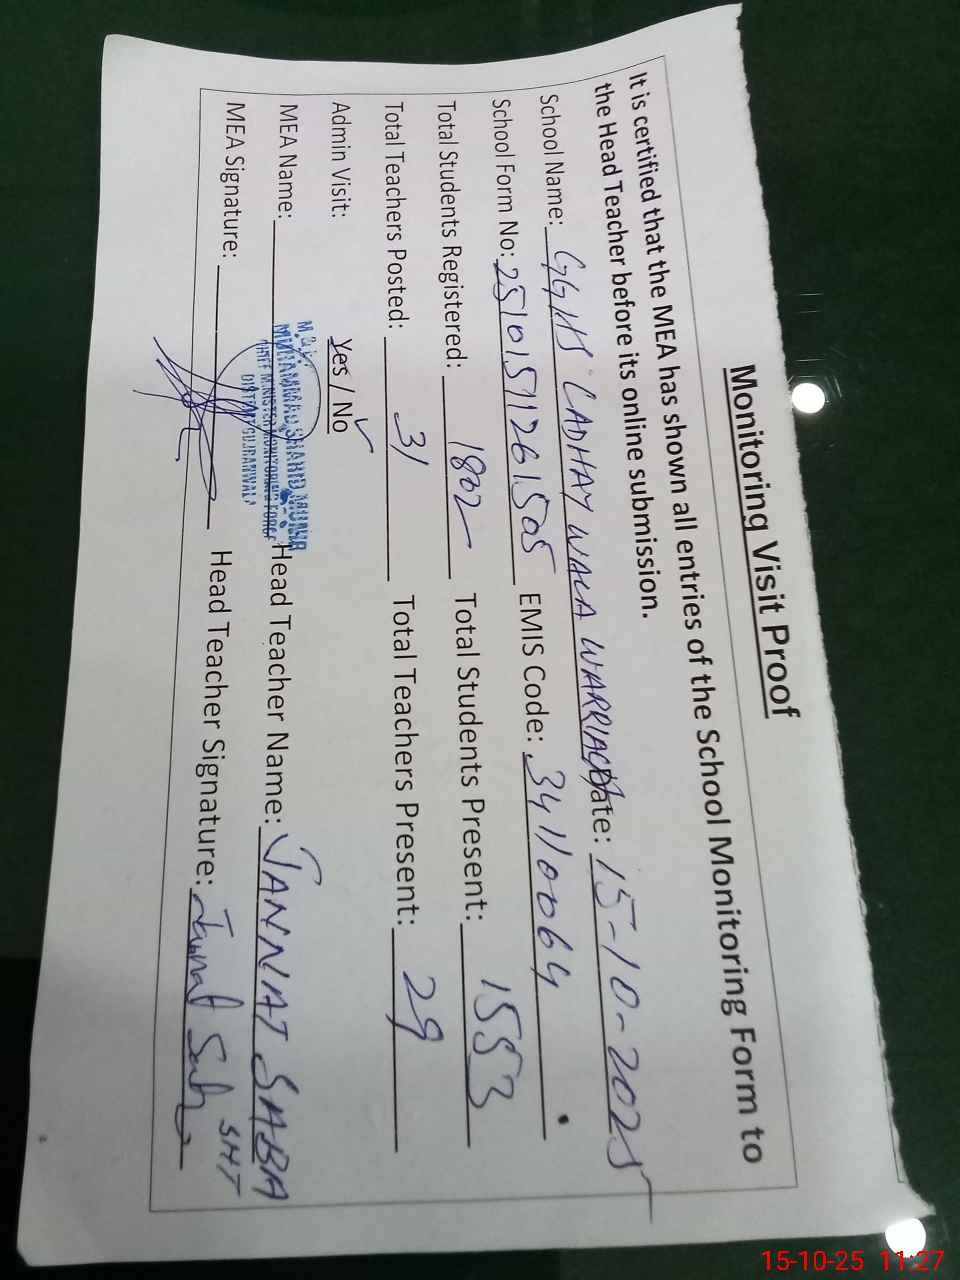 Monitoring Visit Proof
It is certified that the MEA has shown all entries of the School Monitoring Form to
the Head Teacher before its online submission.
School Name: GGHS LADHAY WALA WARRIACH Date: 15-10-2025
School Form No: 25101511261505 EMIS Code: 34110064
Total Students Registered: 1802 Total Students Present: 1553
Total Teachers Posted: 31 Total Teachers Present: 29
Admin Visit: Yes / No ✓
MEA Name: MUHAMMAD SHAHID Head Teacher Name: JANNAT SABA
CHIEF MINISTER MONITORING FORCE
DISTRICT GUJRANWALA
SHT
MEA Signature: Head Teacher Signature: Jannat Saba
15-10-25 11:27